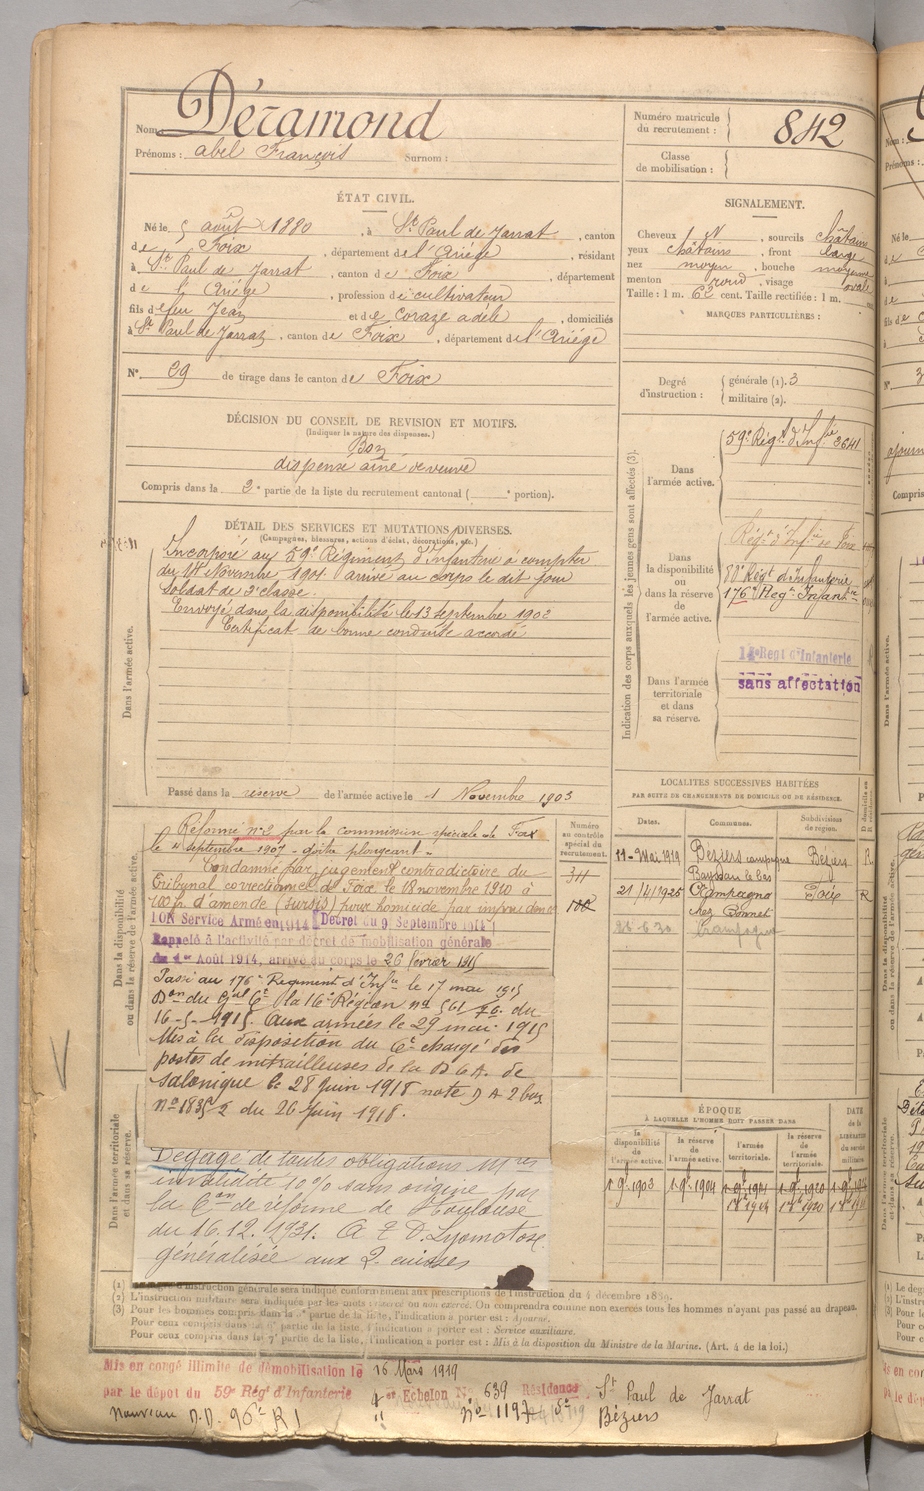 Nom : Déramond
Prénoms : abel François Surnom :
Numéro matricule du recrutement : 842
Classe de mobilisation :
ÉTAT CIVIL.
Né le 5 août 1880, à St Paul de Jarrat, canton
de Foix, département de l'Ariége, résidant
à St Paul de Jarrat, canton de Foix, département
de l'Ariége, profession de cultivateur
fils de feu Jean et de coraze adèle, domiciliés
à St Paul de Jarrat, canton de Foix, département de l'Ariége
N° 39 de tirage dans le canton de Foix
SIGNALEMENT.
Cheveux N, sourcils châtains
yeux châtains, front large
nez moyen, bouche moyenne
menton rond, visage ovale
Taille : 1 m. 62 cent. Taille rectifiée : 1 m.
MARQUES PARTICULIÈRES :
Degré d'instruction : générale (1). 3
militaire (2).
DÉCISION DU CONSEIL DE REVISION ET MOTIFS.
(Indiquer la nature des dispenses.)
Bon
dispensé ainé de veuve
Compris dans la 2e partie de la liste du recrutement cantonal ( e portion).
DÉTAIL DES SERVICES ET MUTATIONS DIVERSES.
(Campagnes, blessures, actions d'éclat, décorations, etc.)
Dans l'armée active.
Incorporé au 59e Régiment d'Infanterie à compter
du 14 Novembre 1901 arrivé au corps le dit jour
Soldat de 2e classe.
Envoyé dans la disponibilité le 13 septembre 1902
Certificat de bonne conduite accordé
Passé dans la réserve de l'armée active le 1 Novembre 1903
Indication des corps auxquels les jeunes gens sont affectés (3).
Dans l'armée active.
59e Régt d'Infrie 3641
Dans la disponibilité ou dans la réserve de l'armée active.
Régt d'Infie de Foix
80e Régt d'Infanterie
176e Regt Infantie
Dans l'armée territoriale et dans sa réserve.
Regt d'Infanterie
sans affectation
Dans la disponibilité ou dans la réserve de l'armée active.
Réformé n°2 par la commission spéciale de Foix
le 4 septembre 1907 - goitre plongeant -
Condamné par jugement contradictoire du
Tribunal correctionnel de Foix le 18 novembre 1910 à
100 f. d'amende (sursis) pour homicide par imprudence
Numéro au contrôle spécial du recrutement.
BON Service Armé en 1914 Décret du 9 Septembre 1914
Rappelé à l'activité par décret de mobilisation générale
du 1er Août 1914, arrivé au corps le 26 février 1915
Passé au 176e Régiment d'Infie le 17 mai 1915
Don du Gal Ct la 16e Région n° 561 du
16-5-1915. Aux armées le 29 mai 1915
Mis à la disposition du Ct chargé des
postes de mitrailleuses de la D C A. de
salonique le 28 Juin 1918 note D A 2 bis
N° 1835 2 du 26 Juin 1918.
Dans l'armée territoriale et dans sa réserve.
Dégagé de toutes obligations Mres
invalidité 10% sans origine par
la Con de réforme de Toulouse
du 16.12.1931. A E D. Lypomatose
généralisée aux 2 cuisses
LOCALITÉS SUCCESSIVES HABITÉES
PAR SUITE DE CHANGEMENTS DE DOMICILE OU DE RÉSIDENCE.
Dates. Communes. Subdivisions de région. D domicile ou R résidence.
11-Mai 1919 Béziers campagne Béziers R
Bayssan le bas
21/4/1925 Campagna Foix R
chez Bonnet
ÉPOQUE
À LAQUELLE L'HOMME DOIT PASSER DANS
la disponibilité de l'armée active. la réserve de l'armée active. l'armée territoriale. la réserve de l'armée territoriale.
DATE de la LIBÉRATION du service militaire.
1-9-1903 1-9-1904
(1) Le degré d'instruction générale sera indiqué conformément aux prescriptions de l'instruction du 4 décembre 1889.
(2) L'instruction militaire sera indiquée par les mots exercé ou non exercé. On comprendra comme non exercés tous les hommes n'ayant pas passé au drapeau.
(3) Pour les hommes compris dans la partie de la liste, l'indication à porter est : Ajourné.
Pour ceux compris dans la 6e partie de la liste, l'indication à porter est : Service auxiliaire.
Pour ceux compris dans la 7e partie de la liste, l'indication à porter est : Mis à la disposition du Ministre de la Marine. (Art. 4 de la loi.)
Mis en congé illimité de démobilisation le 16 Mars 1919
par le dépôt du 59e Régt d'Infanterie Echelon N° 639 Résidence St Paul de Jarrat
nouveau D.D. 96e R I n° 1197 Béziers